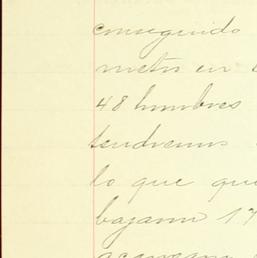 conseguido
metro en
48 hombres
tendremos
lo que que
bajaron 17